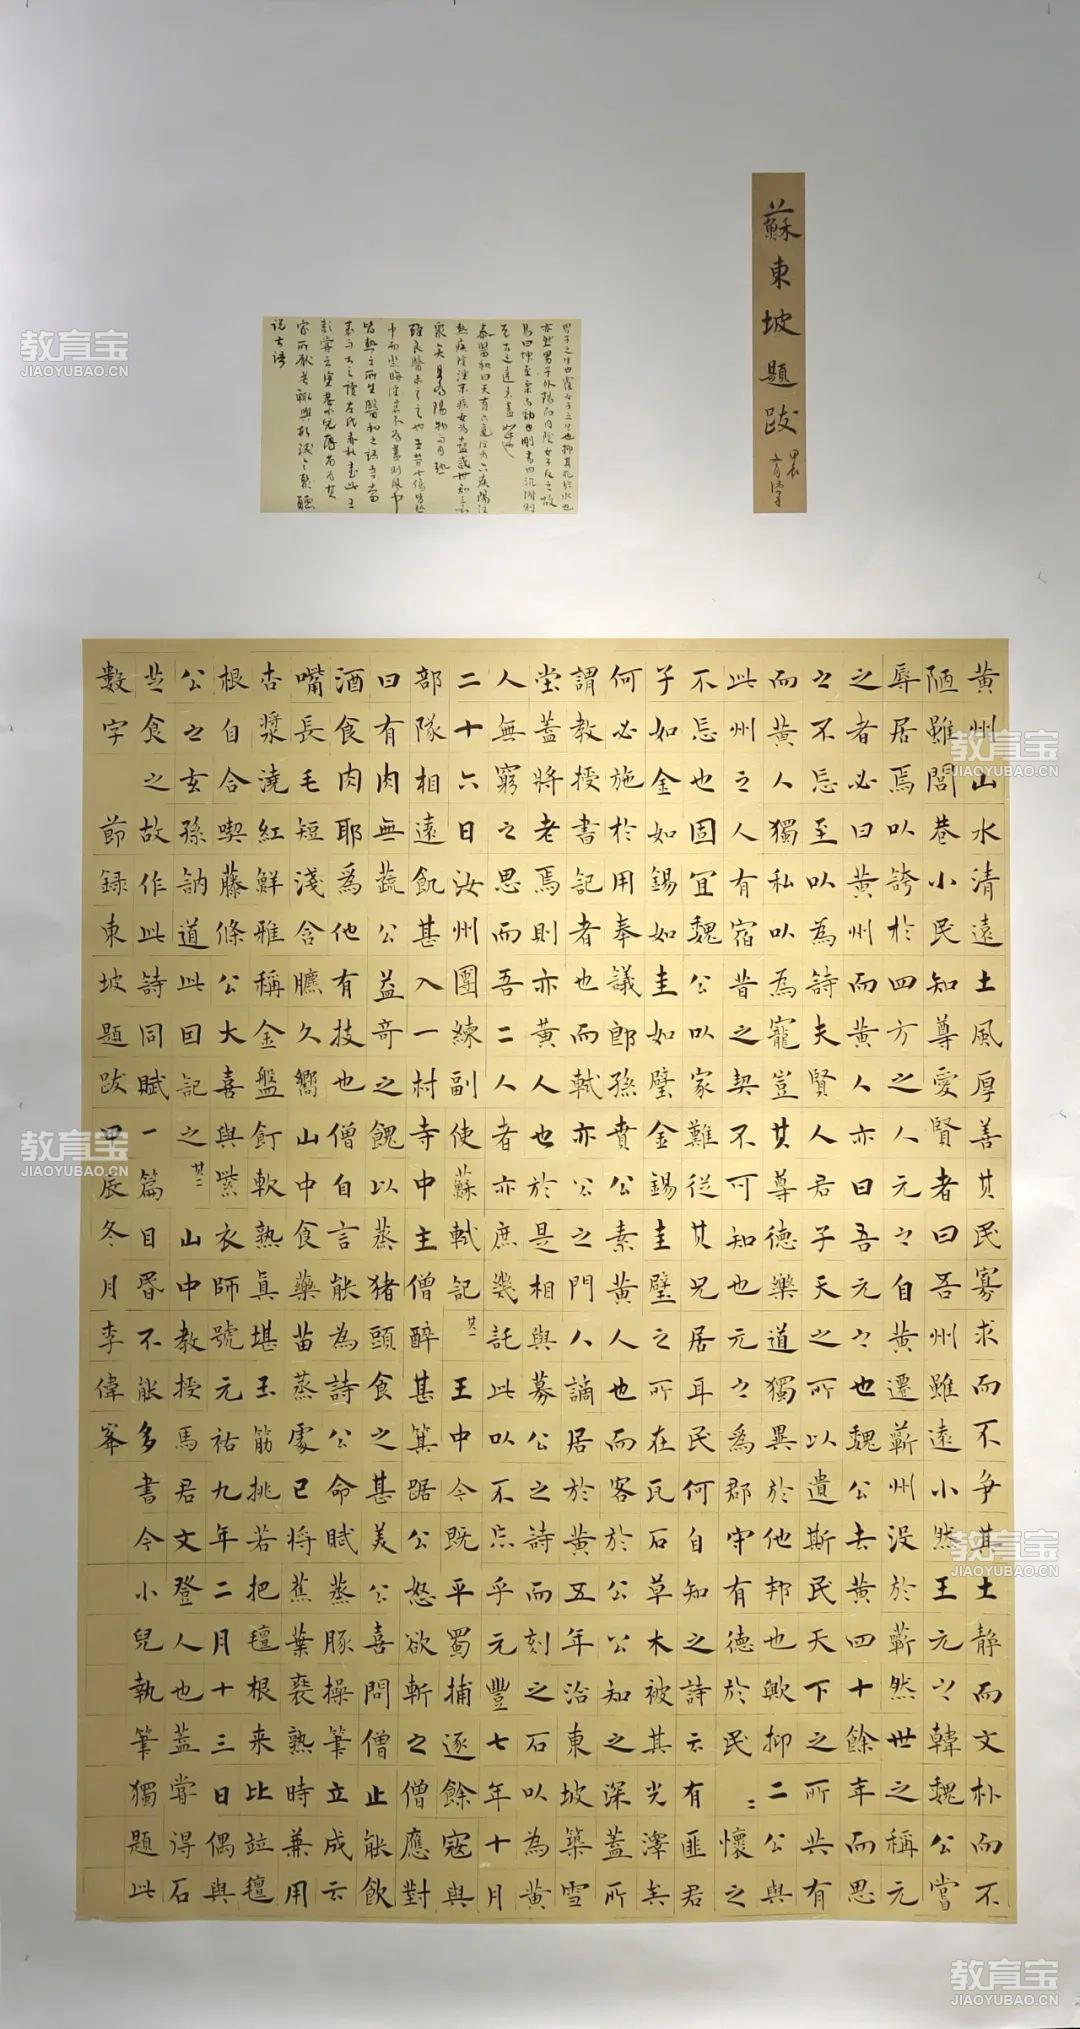 蘇東坡題跋
黃州山水清遠土風厚善其民寡求而不爭其土靜而文朴而不
陋雖閭巷小民知尊愛賢者曰吾州雖遠小然王元之韓魏公嘗
辱居焉以誇於四方之人元之自黃遷蘄州沒於蘄然世之稱元
之者必曰黃州而黃人亦曰吾元之也魏公去黃四十餘年而思
之不忘至以為詩夫賢人君子天之所以遺斯民天下之所共有
而黃人獨私以為寵豈其尊德樂道獨異於他邦也歟抑二公與
此州之人有宿昔之契不可知也元之為郡守有德於民〻懷之
不忘也固宜魏公以家難從其兄居耳民何自知之詩云有匪君
子如金如錫如圭如璧金錫圭璧之所在瓦石草木被其光澤矣
何必施於用奉議郎孫賁公素黃人也而客於公公知之深蓋所
謂教授書記者也而軾亦公之門人謫居於黃五年治東坡築雪
堂蓋將老焉則亦黃人也於是相與募公之詩而刻之石以為黃
人無窮之思而吾二人者亦庶幾託此以不忘乎元豐七年十月
二十六日汝州團練副使蘇軾記 其一 王中令既平蜀捕逐餘寇與
部隊相遠飢甚入一村寺中主僧醉甚箕踞公怒欲斬之僧應對
曰有肉無蔬公益奇之餽以蒸猪頭食之甚美公喜問僧止能飲
酒食肉耶為他有技也僧自言能為詩公命賦蒸豚操筆立成云
嘴長毛短淺含臕久嚮山中食藥苗蒸處已將蕉葉裛熟時兼用
杏漿澆紅鮮雅稱金盤飣軟熟真堪玉筋挑若把氊根来比竝氊
根自合喫藤條公大喜與紫衣師號元祐九年二月十三日偶與
公之玄孫訥道此因記之 其二 山中教授馬君文登人也蓋嘗得石
芝食之故作此詩同賦一篇目昏不能多書今小兒執筆獨題此
數字 節録東坡題跋甲辰冬月李偉峯
教育宝
JIAOYUBAO.CN
教育宝
JIAOYUBAO.CN
教育宝
JIAOYUBAO.CN
教育宝
JIAOYUBAO.CN
教育宝
JIAOYUBAO.CN